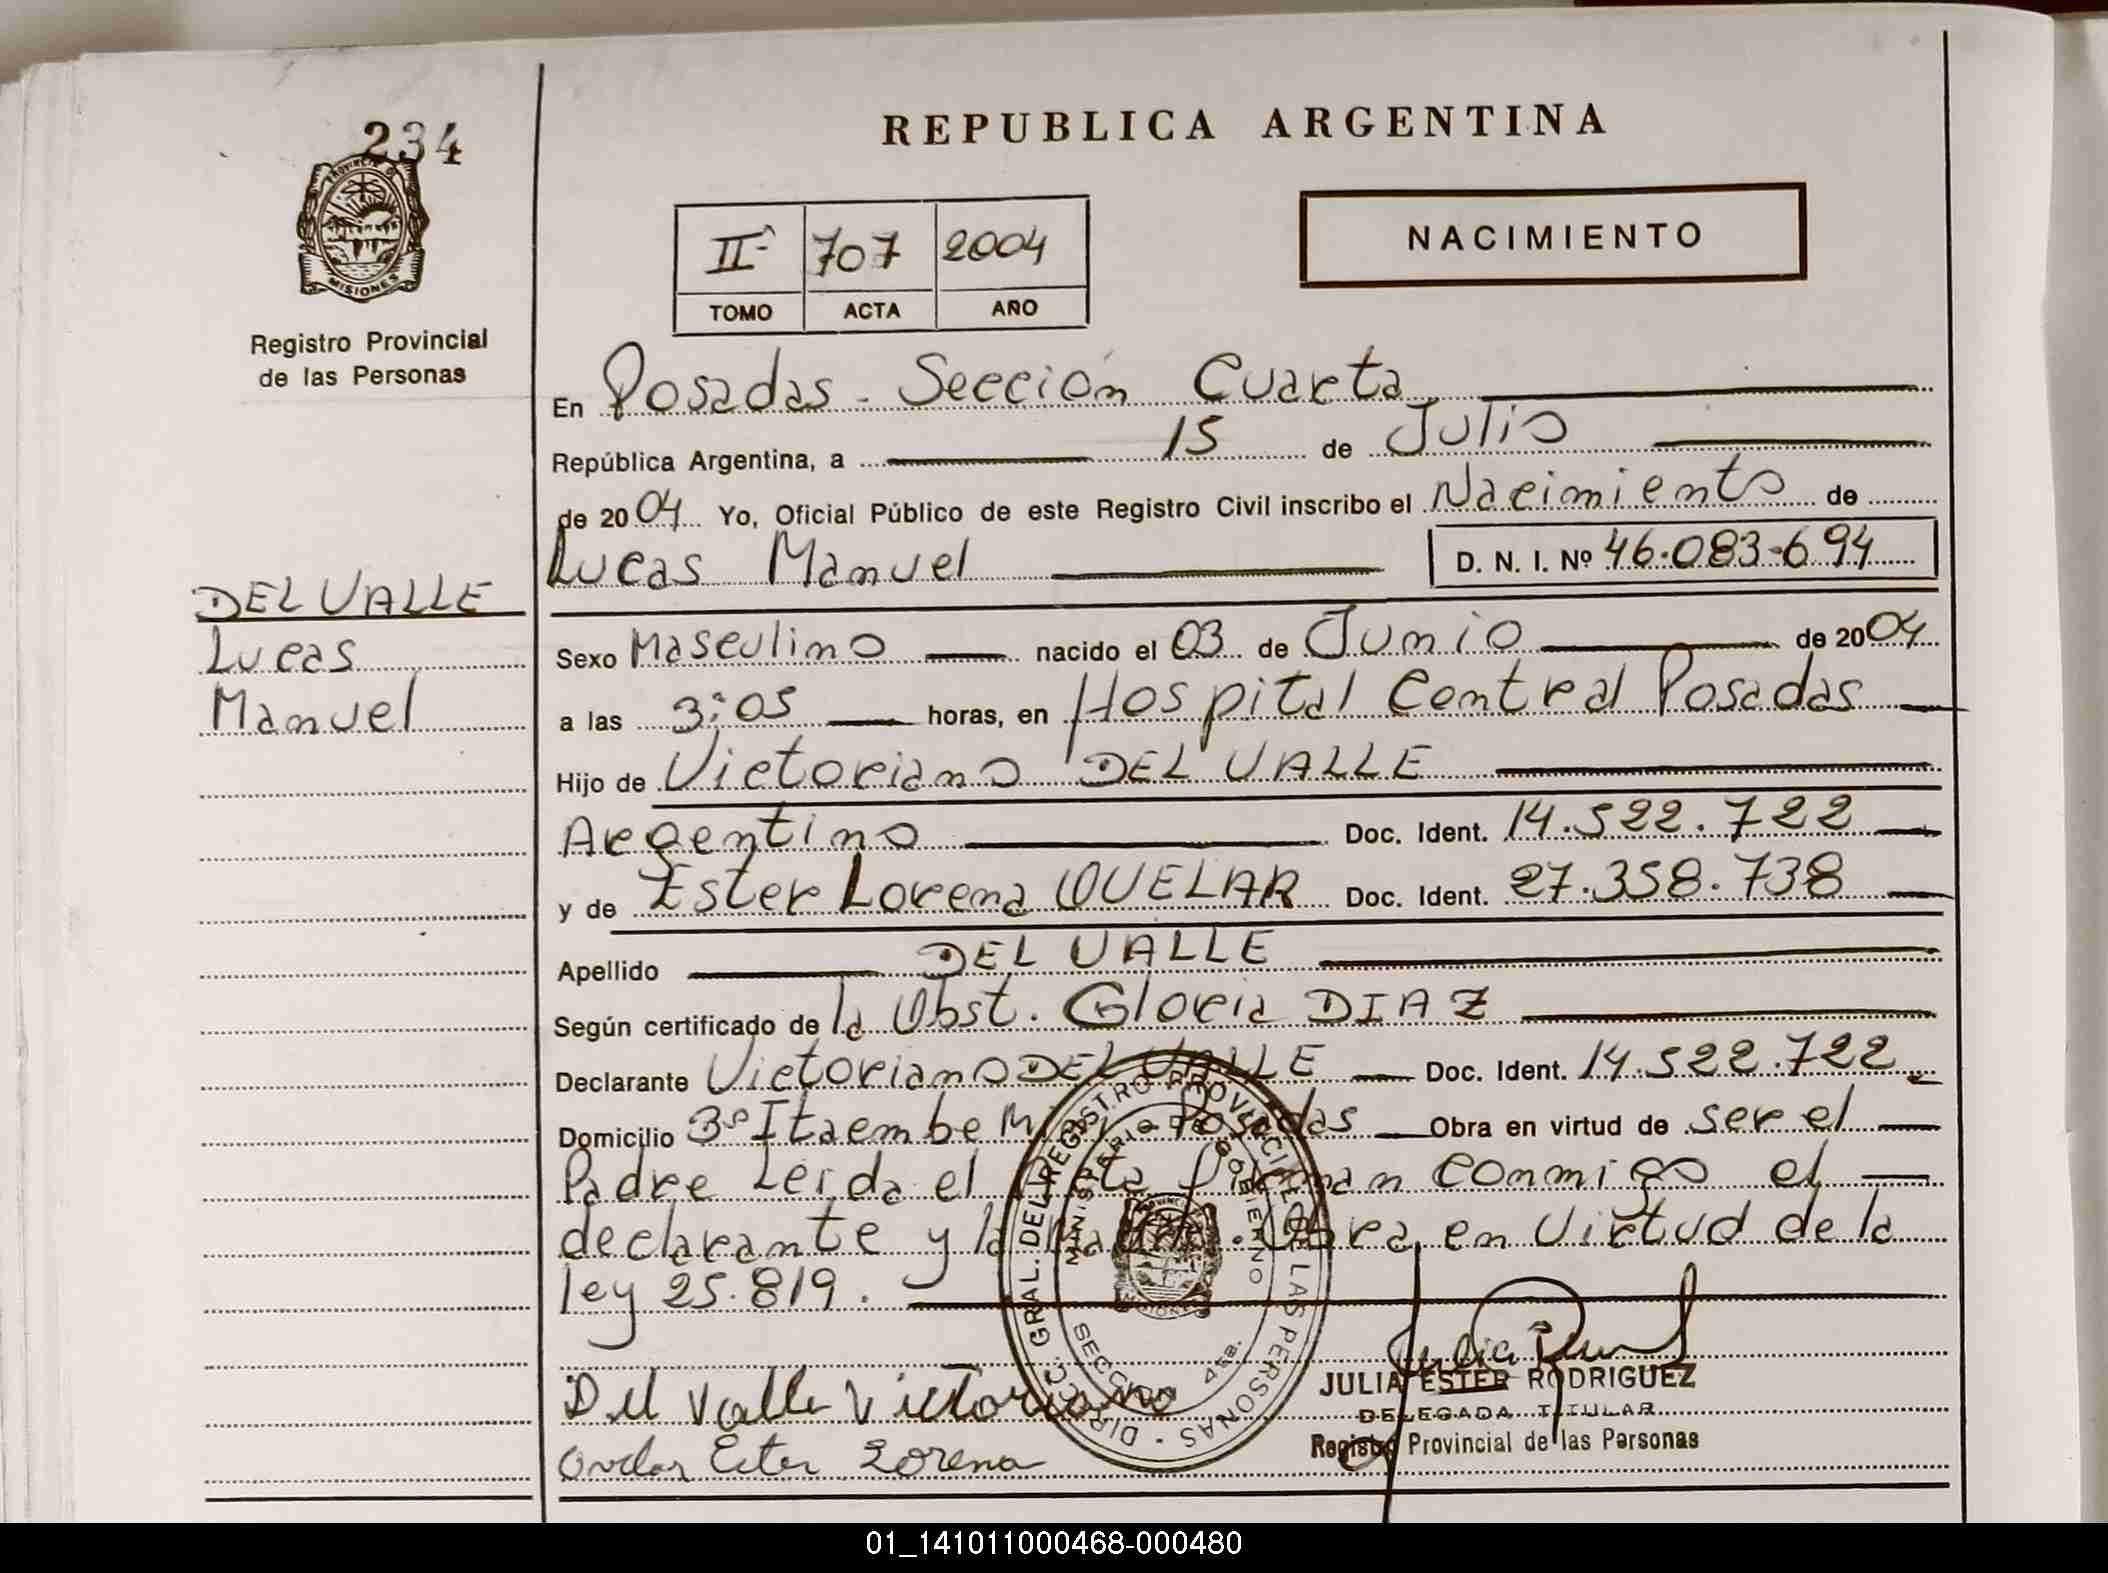 234
PROVINCIA DE
MISIONES
Registro Provincial
de las Personas
DEL VALLE
Lucas
Manuel
REPUBLICA ARGENTINA
IIº 707 2004
TOMO ACTA AÑO
NACIMIENTO
En Posadas - Sección Cuarta
República Argentina, a 15 de Julio
de 2004 Yo, Oficial Público de este Registro Civil inscribo el Nacimiento de
Lucas Manuel D. N. I. Nº 46.083.694
Sexo Masculino nacido el 03 de Junio de 2004
a las 3:05 horas, en Hospital Central Posadas
Hijo de Victoriano DEL VALLE
Argentino Doc. Ident. 14.522.722
y de Ester Lorena OVELAR Doc. Ident. 27.358.738
Apellido DEL VALLE
Según certificado de la Obst. Gloria DIAZ
Declarante Victoriano DEL VALLE Doc. Ident. 14.522.722
Domicilio 3º Itaembe Mini Posadas Obra en virtud de ser el
Padre Leida el Acta Firman conmigo el
declarante y la Madre. Obra en Virtud de la
ley 25.819.
DIRECC. GRAL. DEL REGISTRO PROVINCIAL DE LAS PERSONAS
MINISTERIO DE GOBIERNO
SECCION 4ta.
Del Valle Victoriano
Ovelar Ester Lorena
JULIA ESTER RODRIGUEZ
DELEGADA TITULAR
Registro Provincial de las Personas
01_141011000468-000480